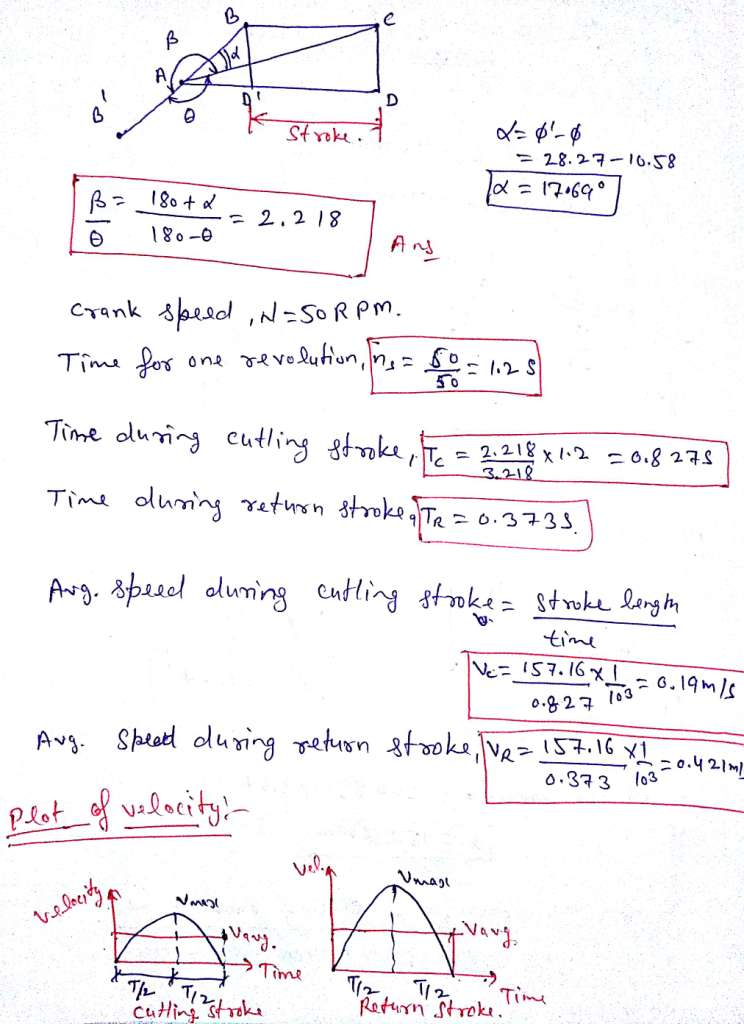 B
C
β
α
A
B'
θ
D'
D
Stroke.
α = ϕ' - ϕ
= 28.27 - 10.58
α = 17.69°
β/θ = (180 + α)/(180 - θ) = 2.218
Ans
Crank speed, N = 50 RPM.
Time for one revolution, ns = 60/50 = 1.2 S
Time during cutting stroke, Tc = 2.218/3.218 x 1.2 = 0.827S
Time during return stroke, TR = 0.373S.
Avg. Speed during cutting stroke = Stroke length/time
Vc = 157.16/0.827 x 1/10³ = 0.19m/s
Avg. Speed during return stroke, VR = 157.16/0.373 x 1/10³ = 0.421m/
Plot of velocity:-
velocity
Vmax
Vavg.
Time
T/2 T/2
Cutting stroke
Vel.
Vmax
Vavg.
T/2 T/2
Time
Return Stroke.